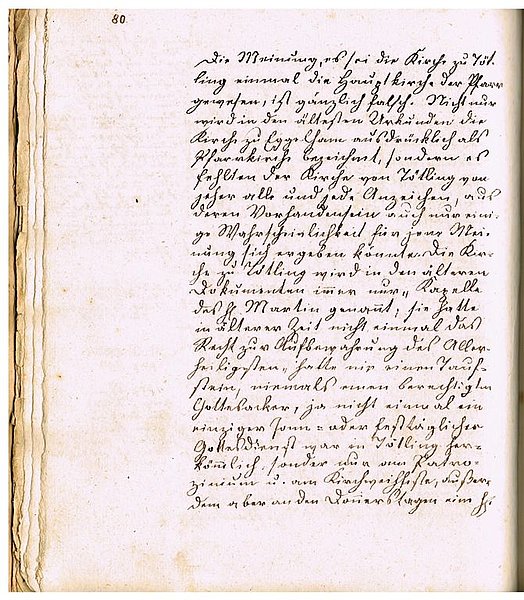 80.
Die Meinung, es sei die Kirche zu Töt-
ling einmal die Hauptkirche der Pfarr
gewesen, ist gänzlich falsch. Nicht nur
wird in den ältesten Urkunden die
Kirche zu Eggelham ausdrücklich als
Pfarrkirche bezeichnet, sondern es
fehlten der Kirche von Tötling von
jeher alle und jede Anzeichen, aus
deren Vorhandensein auch nur eini-
ge Wahrscheinlichkeit für jene Mei-
nung sich ergeben könnte. Die Kir-
che zu Tötling wird in den älteren
Dokumenten immer nur „Kapelle
des hl. Martin genannt; sie hatte
in älterer Zeit nicht einmal das
Recht zur Aufbewahrung des Aller-
heiligsten, hatte nie einen Tauf-
stein, niemals einen berechtigten
Gottesacker, ja nicht einmal ein
einziger sonn- oder festtäglicher
Gottesdienst war in Tötling her-
kömmlich, sonder nur am Patro-
zinium u. am Kirchweihfeste, außer-
dem aber an den Donerstagen eine hl.